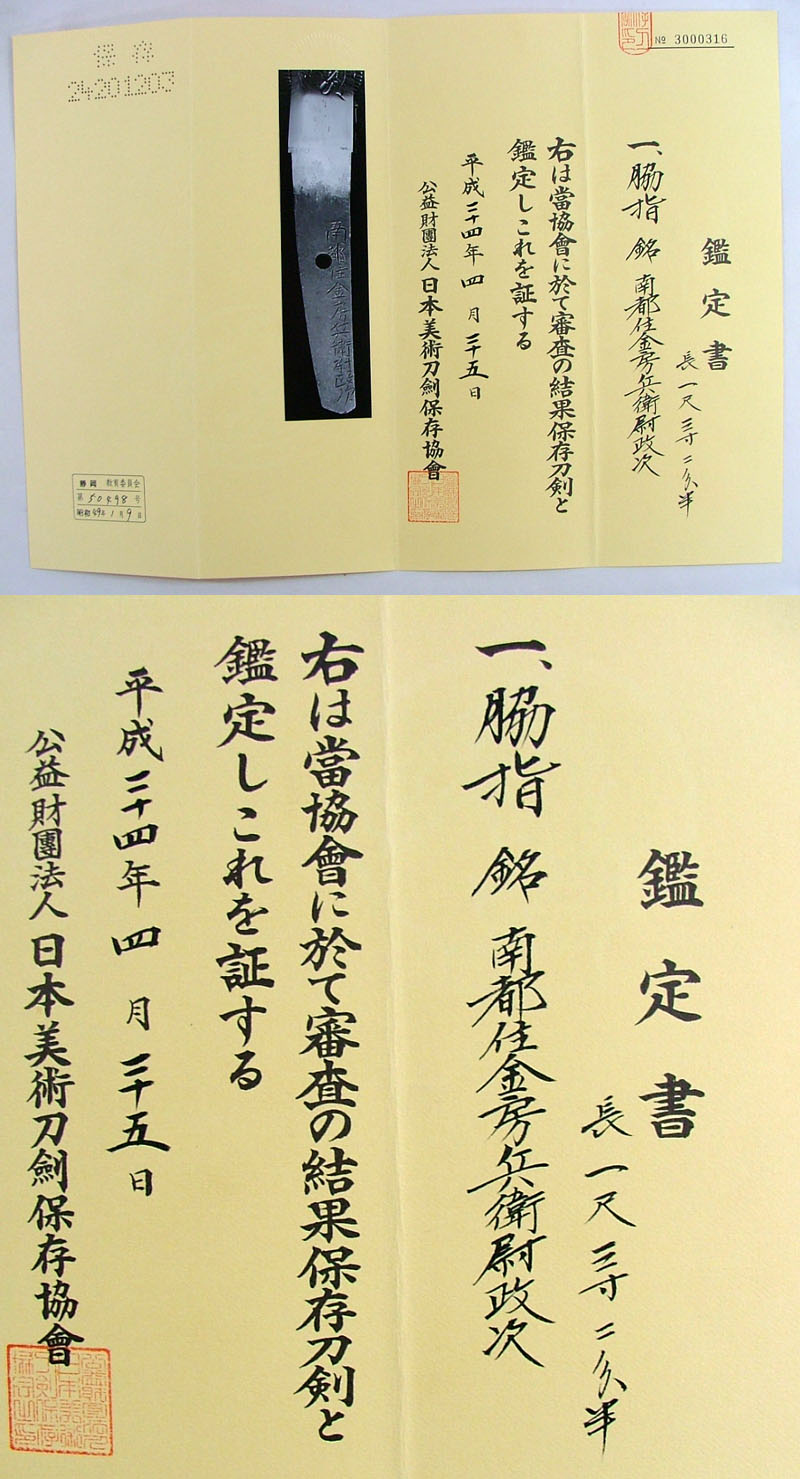 № 3000316
鑑定書
長 一尺三寸二分半
一、脇指 銘 南都住金房兵衛尉政次
右は當協會に於て審査の結果保存刀剣と
鑑定しこれを証する
平成二十四年四月二十五日
公益財團法人日本美術刀劍保存協會
南都住金房兵衛尉政次
保存
24201203
静岡 教育委員会
第50498号
昭和49年1月9日
鑑定書
長 一尺三寸二分半
一、脇指 銘 南都住金房兵衛尉政次
右は當協會に於て審査の結果保存刀剣と
鑑定しこれを証する
平成二十四年四月二十五日
公益財團法人日本美術刀劍保存協會